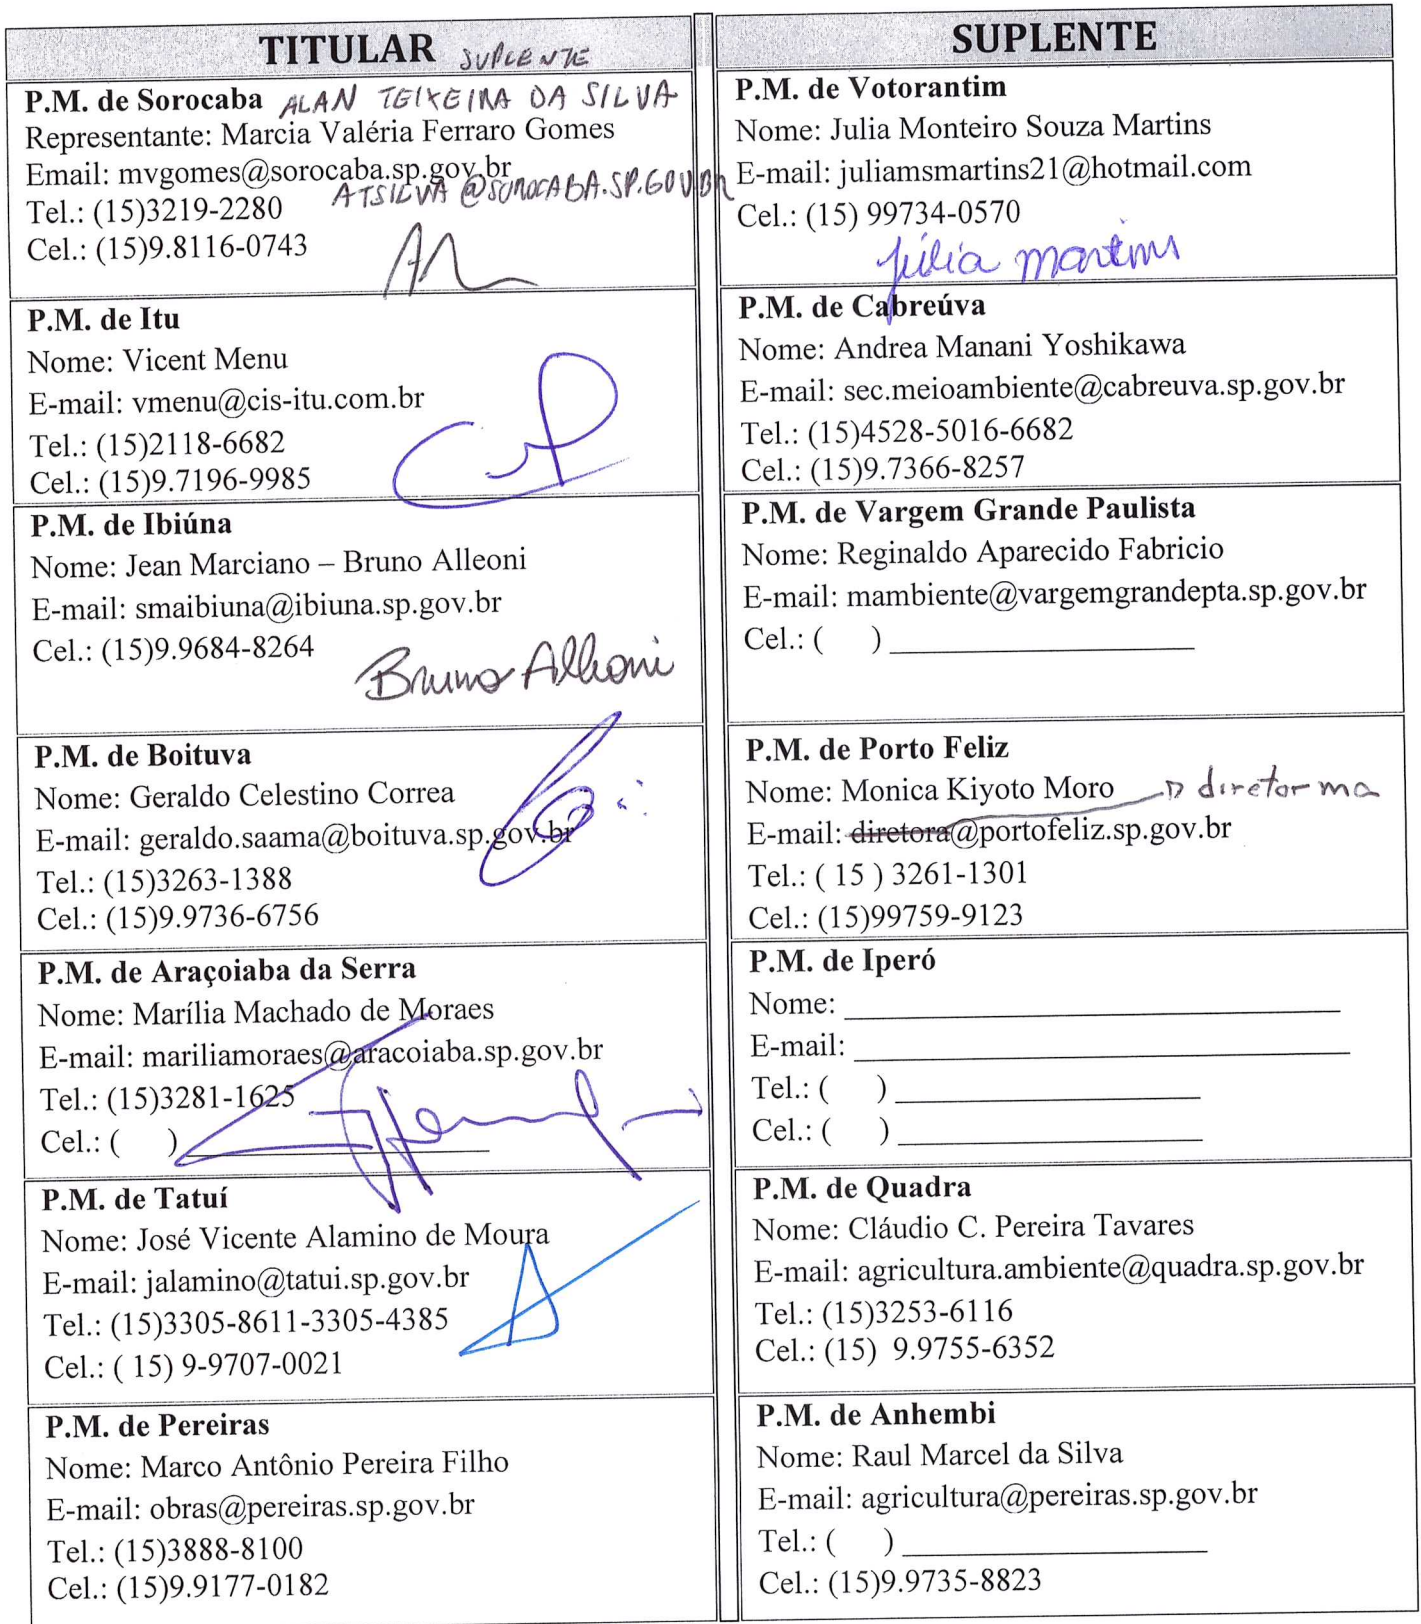 TITULAR SUPLENTE
P.M. de Sorocaba ALAN TEIXEIRA DA SILVA
Representante: Marcia Valéria Ferraro Gomes
Email: mvgomes@sorocaba.sp.gov.br
ATSILVA@SOROCABA.SP.GOV.BR
Tel.: (15)3219-2280
Cel.: (15)9.8116-0743
P.M. de Itu
Nome: Vicent Menu
E-mail: vmenu@cis-itu.com.br
Tel.: (15)2118-6682
Cel.: (15)9.7196-9985
P.M. de Ibiúna
Nome: Jean Marciano – Bruno Alleoni
E-mail: smaibiuna@ibiuna.sp.gov.br
Cel.: (15)9.9684-8264
Bruno Alleoni
P.M. de Boituva
Nome: Geraldo Celestino Correa
E-mail: geraldo.saama@boituva.sp.gov.br
Tel.: (15)3263-1388
Cel.: (15)9.9736-6756
P.M. de Araçoiaba da Serra
Nome: Marília Machado de Moraes
E-mail: mariliamoraes@aracoiaba.sp.gov.br
Tel.: (15)3281-1625
Cel.: ( )
P.M. de Tatuí
Nome: José Vicente Alamino de Moura
E-mail: jalamino@tatui.sp.gov.br
Tel.: (15)3305-8611-3305-4385
Cel.: ( 15) 9-9707-0021
P.M. de Pereiras
Nome: Marco Antônio Pereira Filho
E-mail: obras@pereiras.sp.gov.br
Tel.: (15)3888-8100
Cel.: (15)9.9177-0182
SUPLENTE
P.M. de Votorantim
Nome: Julia Monteiro Souza Martins
E-mail: juliamsmartins21@hotmail.com
Cel.: (15) 99734-0570
Júlia Martins
P.M. de Cabreúva
Nome: Andrea Manani Yoshikawa
E-mail: sec.meioambiente@cabreuva.sp.gov.br
Tel.: (15)4528-5016-6682
Cel.: (15)9.7366-8257
P.M. de Vargem Grande Paulista
Nome: Reginaldo Aparecido Fabricio
E-mail: mambiente@vargemgrandepta.sp.gov.br
Cel.: ( )
P.M. de Porto Feliz
Nome: Monica Kiyoto Moro diretorma
E-mail: diretora@portofeliz.sp.gov.br
Tel.: ( 15 ) 3261-1301
Cel.: (15)99759-9123
P.M. de Iperó
Nome:
E-mail:
Tel.: ( )
Cel.: ( )
P.M. de Quadra
Nome: Cláudio C. Pereira Tavares
E-mail: agricultura.ambiente@quadra.sp.gov.br
Tel.: (15)3253-6116
Cel.: (15) 9.9755-6352
P.M. de Anhembi
Nome: Raul Marcel da Silva
E-mail: agricultura@pereiras.sp.gov.br
Tel.: ( )
Cel.: (15)9.9735-8823